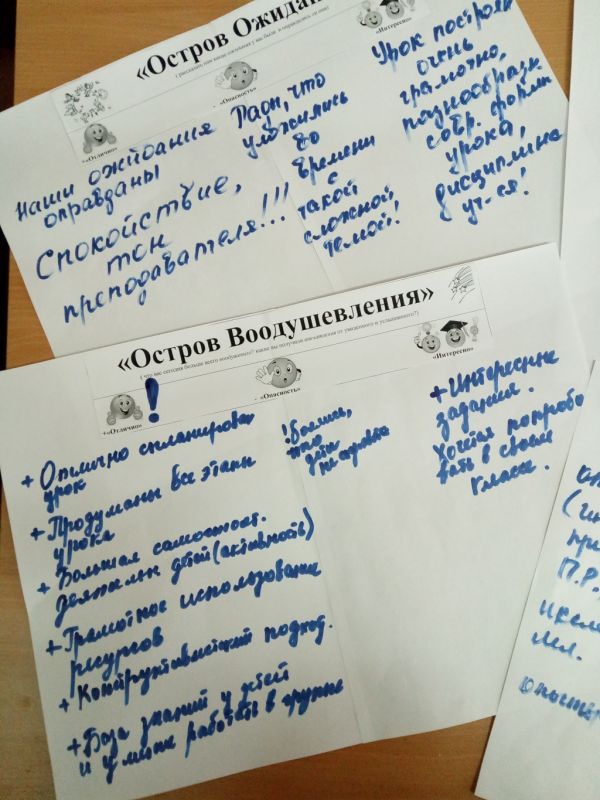 «Остров Ожидан
+«Отлично»
- «Опасность»
«Интересно»
Наши ожидания
оправданы
Спокойствие,
тон
преподавателя!!!
Рады, что
уложились
во
времени
с
такой
сложной
темой!
Урок построен
очень
грамотно,
разнообразн.
совр. формы
урока,
дисциплина
уч-ся!
«Остров Воодушевления»
( что вас сегодня больше всего воодушевило? какие вы получили впечатления от увиденного и услышанного?)
+«Отлично»
!
- «Опасность»
«Интересно»
+ Отлично спланирован
урок
+ Продуманы все этапы
урока
+ Большая самостоят.
деятельн детей (активность)
+ Грамотное использование
ресурсов
+ Конструктивистский подход.
+ База знаний у детей
и умение работать в группе
! Боялись,
что
дети
не
+ Интересные
задания.
Хочется попробо
вать в своем
классе.
П.Р.